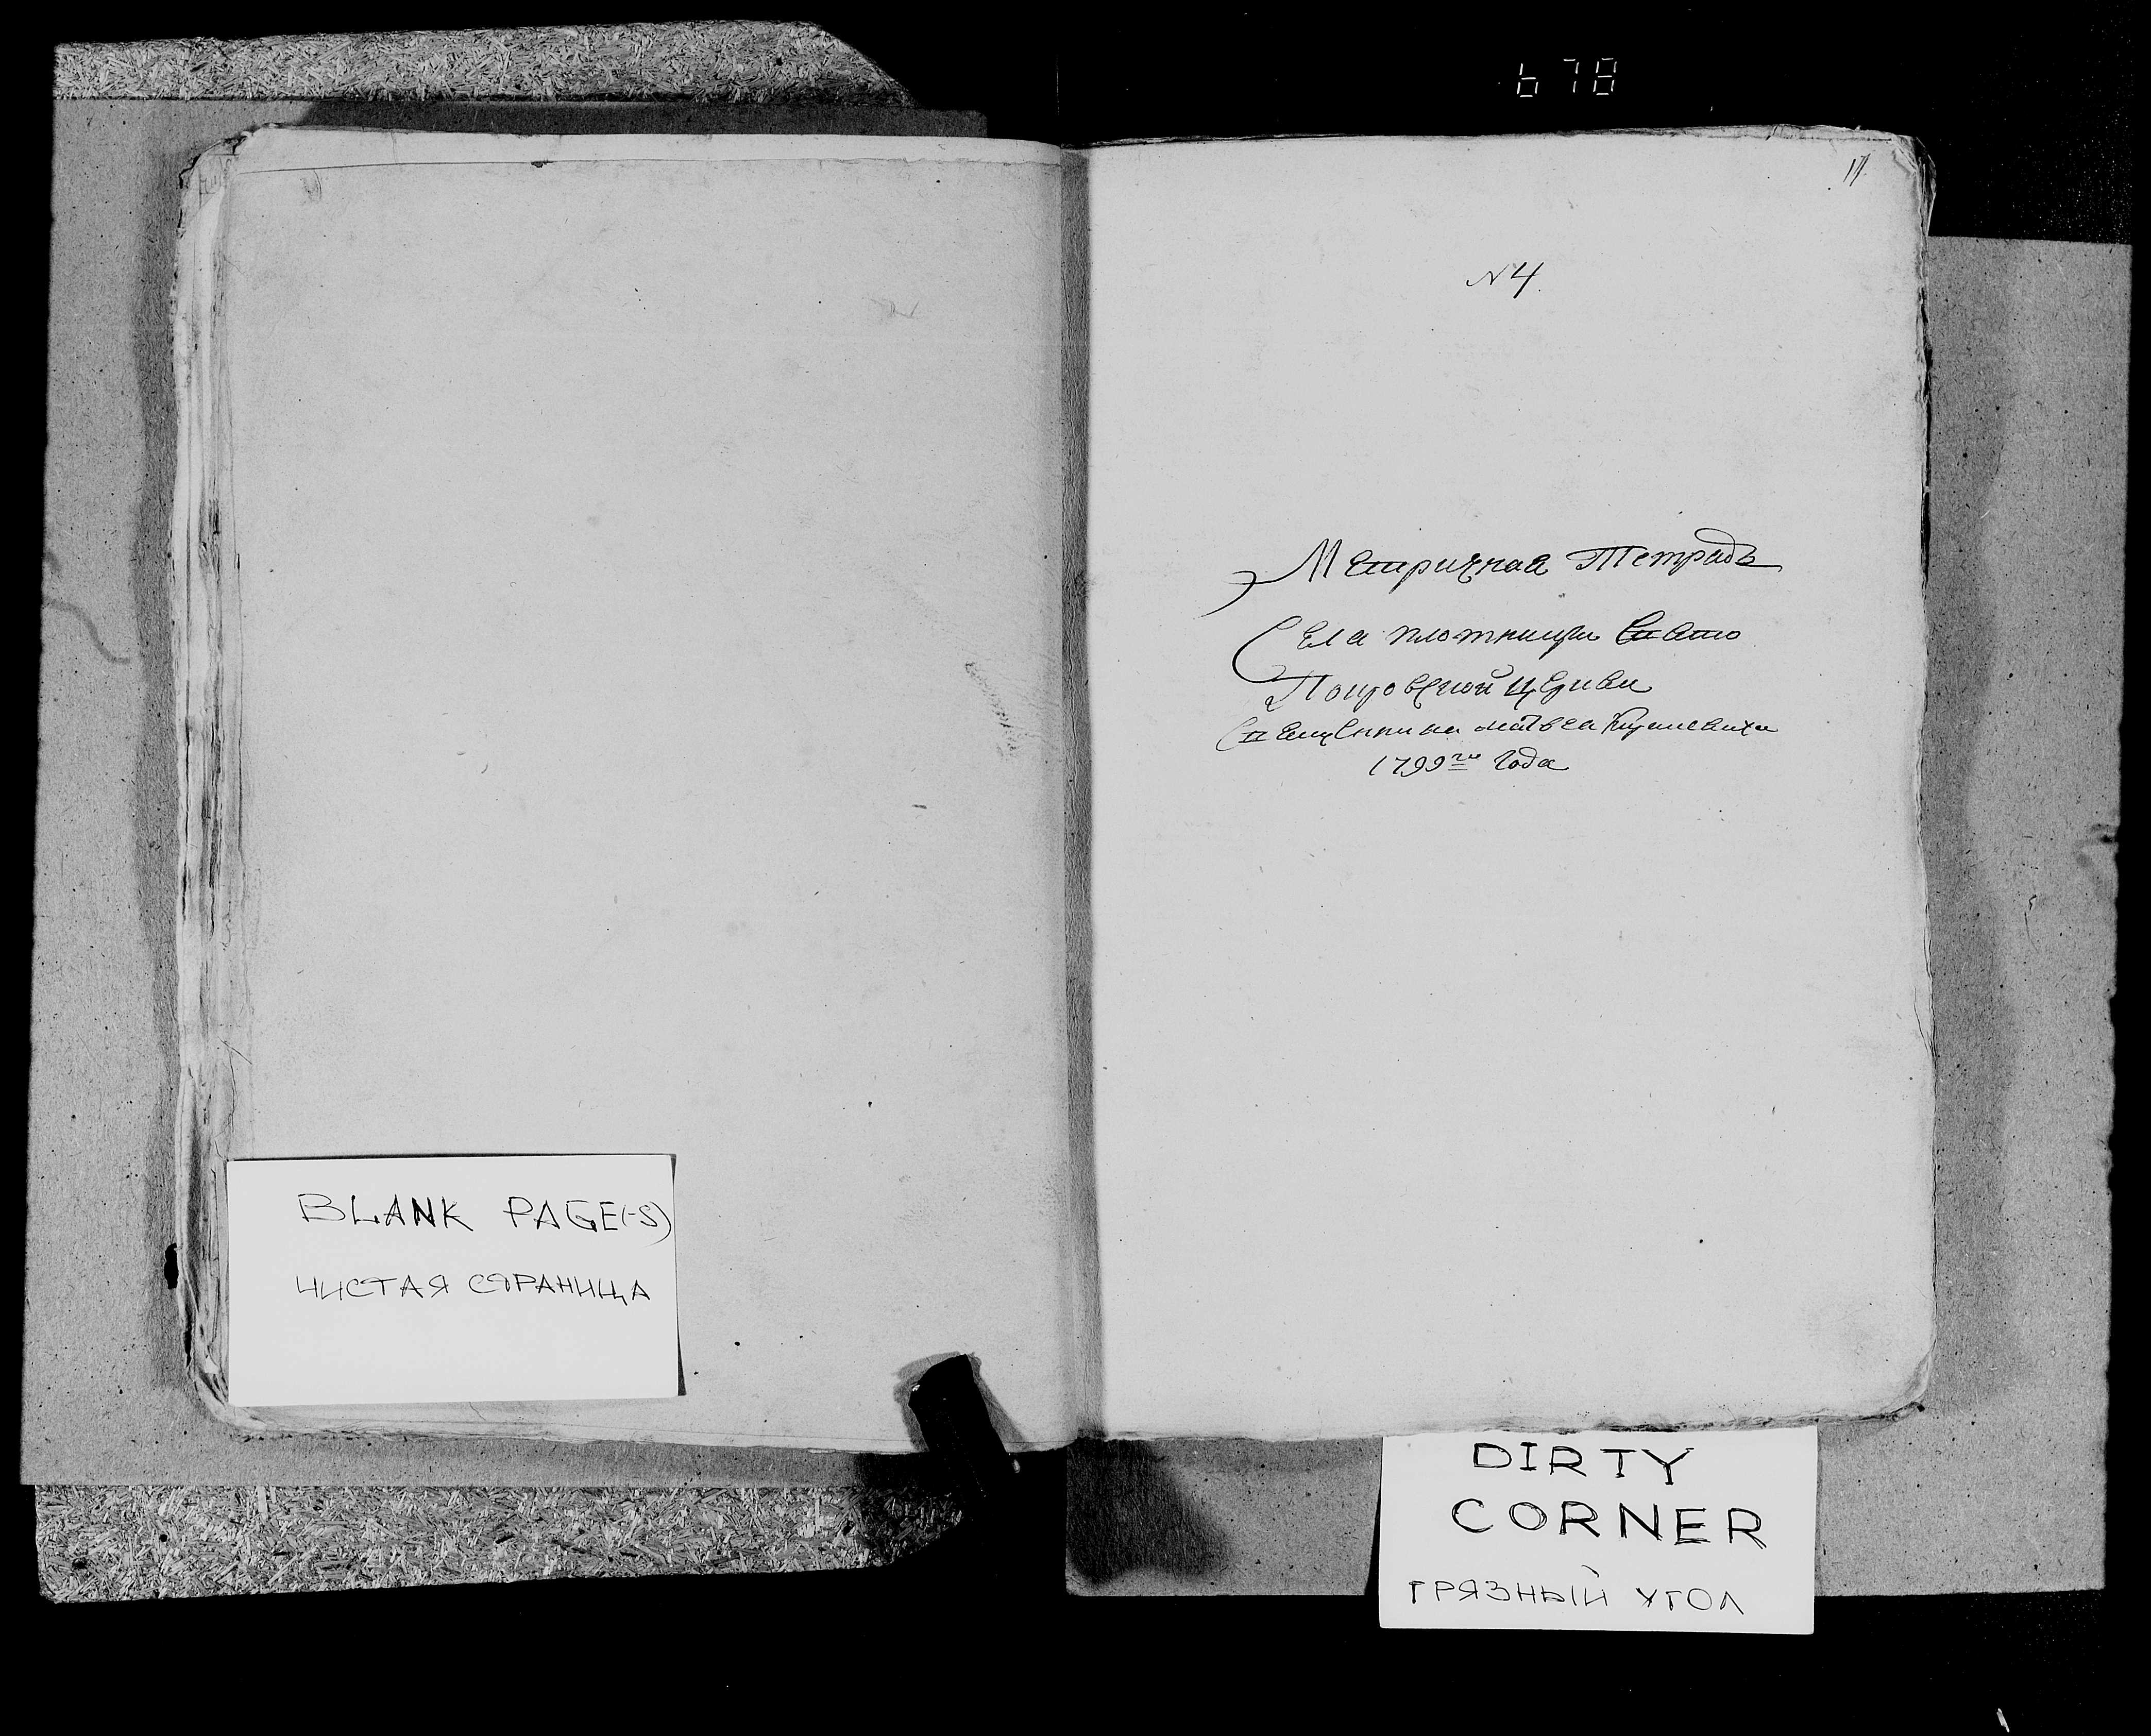 678
11
N4.
Метричная Тетрадь
Села плотницы Свято
Покровской церкви
Священника матвеа
1799го Года
BLANK PAGE(-S)
ЧИСТАЯ СТРАНИЦА
DIRTY
CORNER
ГРЯЗНЫЙ УГОЛ